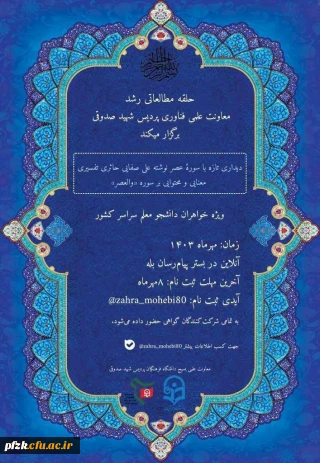 حلقه مطالعاتی رشد
معاونت علمی فناوری پردیس شهید صدوقی
برگزار میکند
دیداری تازه با سورهٔ عصر نوشته علی صفایی حائری تفسیری
معنایی و محتوایی بر سوره «والعصر»
ویژه خواهران دانشجو معلم سراسر کشور
زمان: مهرماه ۱۴۰۳
آنلاین در بستر پیام‌رسان بله
آخرین مهلت ثبت نام: ۸مهرماه
آیدی ثبت نام: @zahra_mohebi80
به تمامی شرکت‌کنندگان گواهی حضور داده می‌شود.
جهت کسب اطلاعات بیشتر @zahra_mohebi80
معاونت علمی بسیج دانشگاه فرهنگیان پردیس شهید صدوقی
pfzk.cfu.ac.ir